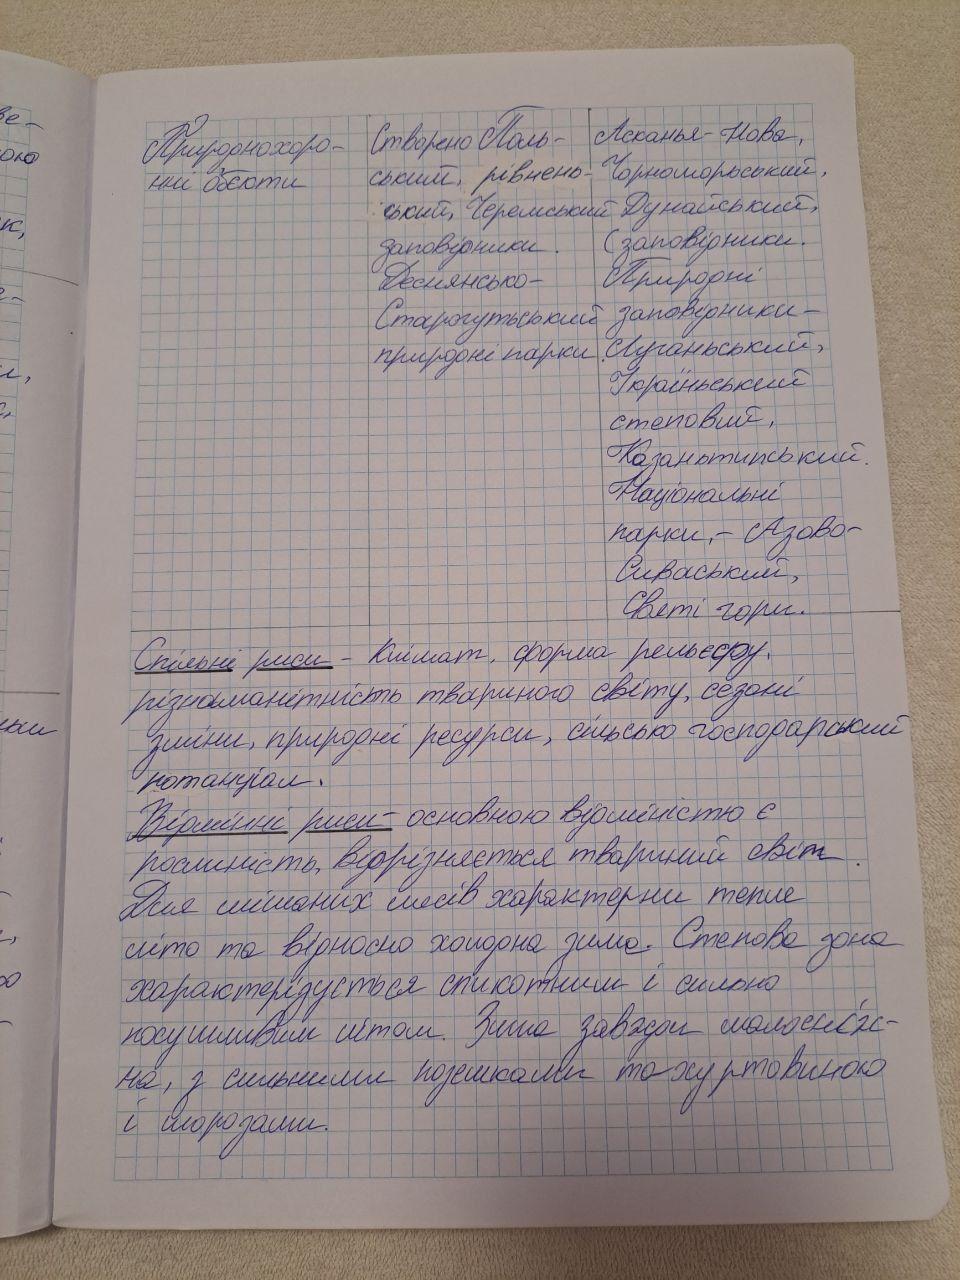 Природнохоро-
нні обєкти
Створено Поль-
ський, рівнень-
ський, Черемський
заповідники.
Деснянсько-
Старогутьський
природні парки.
Асканья-Нова,
Чорноморьський,
Дунайський,
(заповідники.
Природні
заповідники-
Луганьський,
Україньський
степовий,
Казаньтипський.
Національні
парки,- Азово-
Сиваський,
Святі гори.
Спільні риси - Клімат, форма рельєфу,
різноманітність твариного світу, сезоні
зміни, природні ресурси, сільсько господарський
потанціал.
Відмінні риси- основною відміністю є
рослиність, відрізняється твариний світ.
Для мішаних лісів характерни тепле
літо та відносно холодна зима. Степова зона
характерізується спикотним і сильно
посушливим літом. Зима завжди малосніж-
на, з сильними поземками та хуртовиною
і морозами.